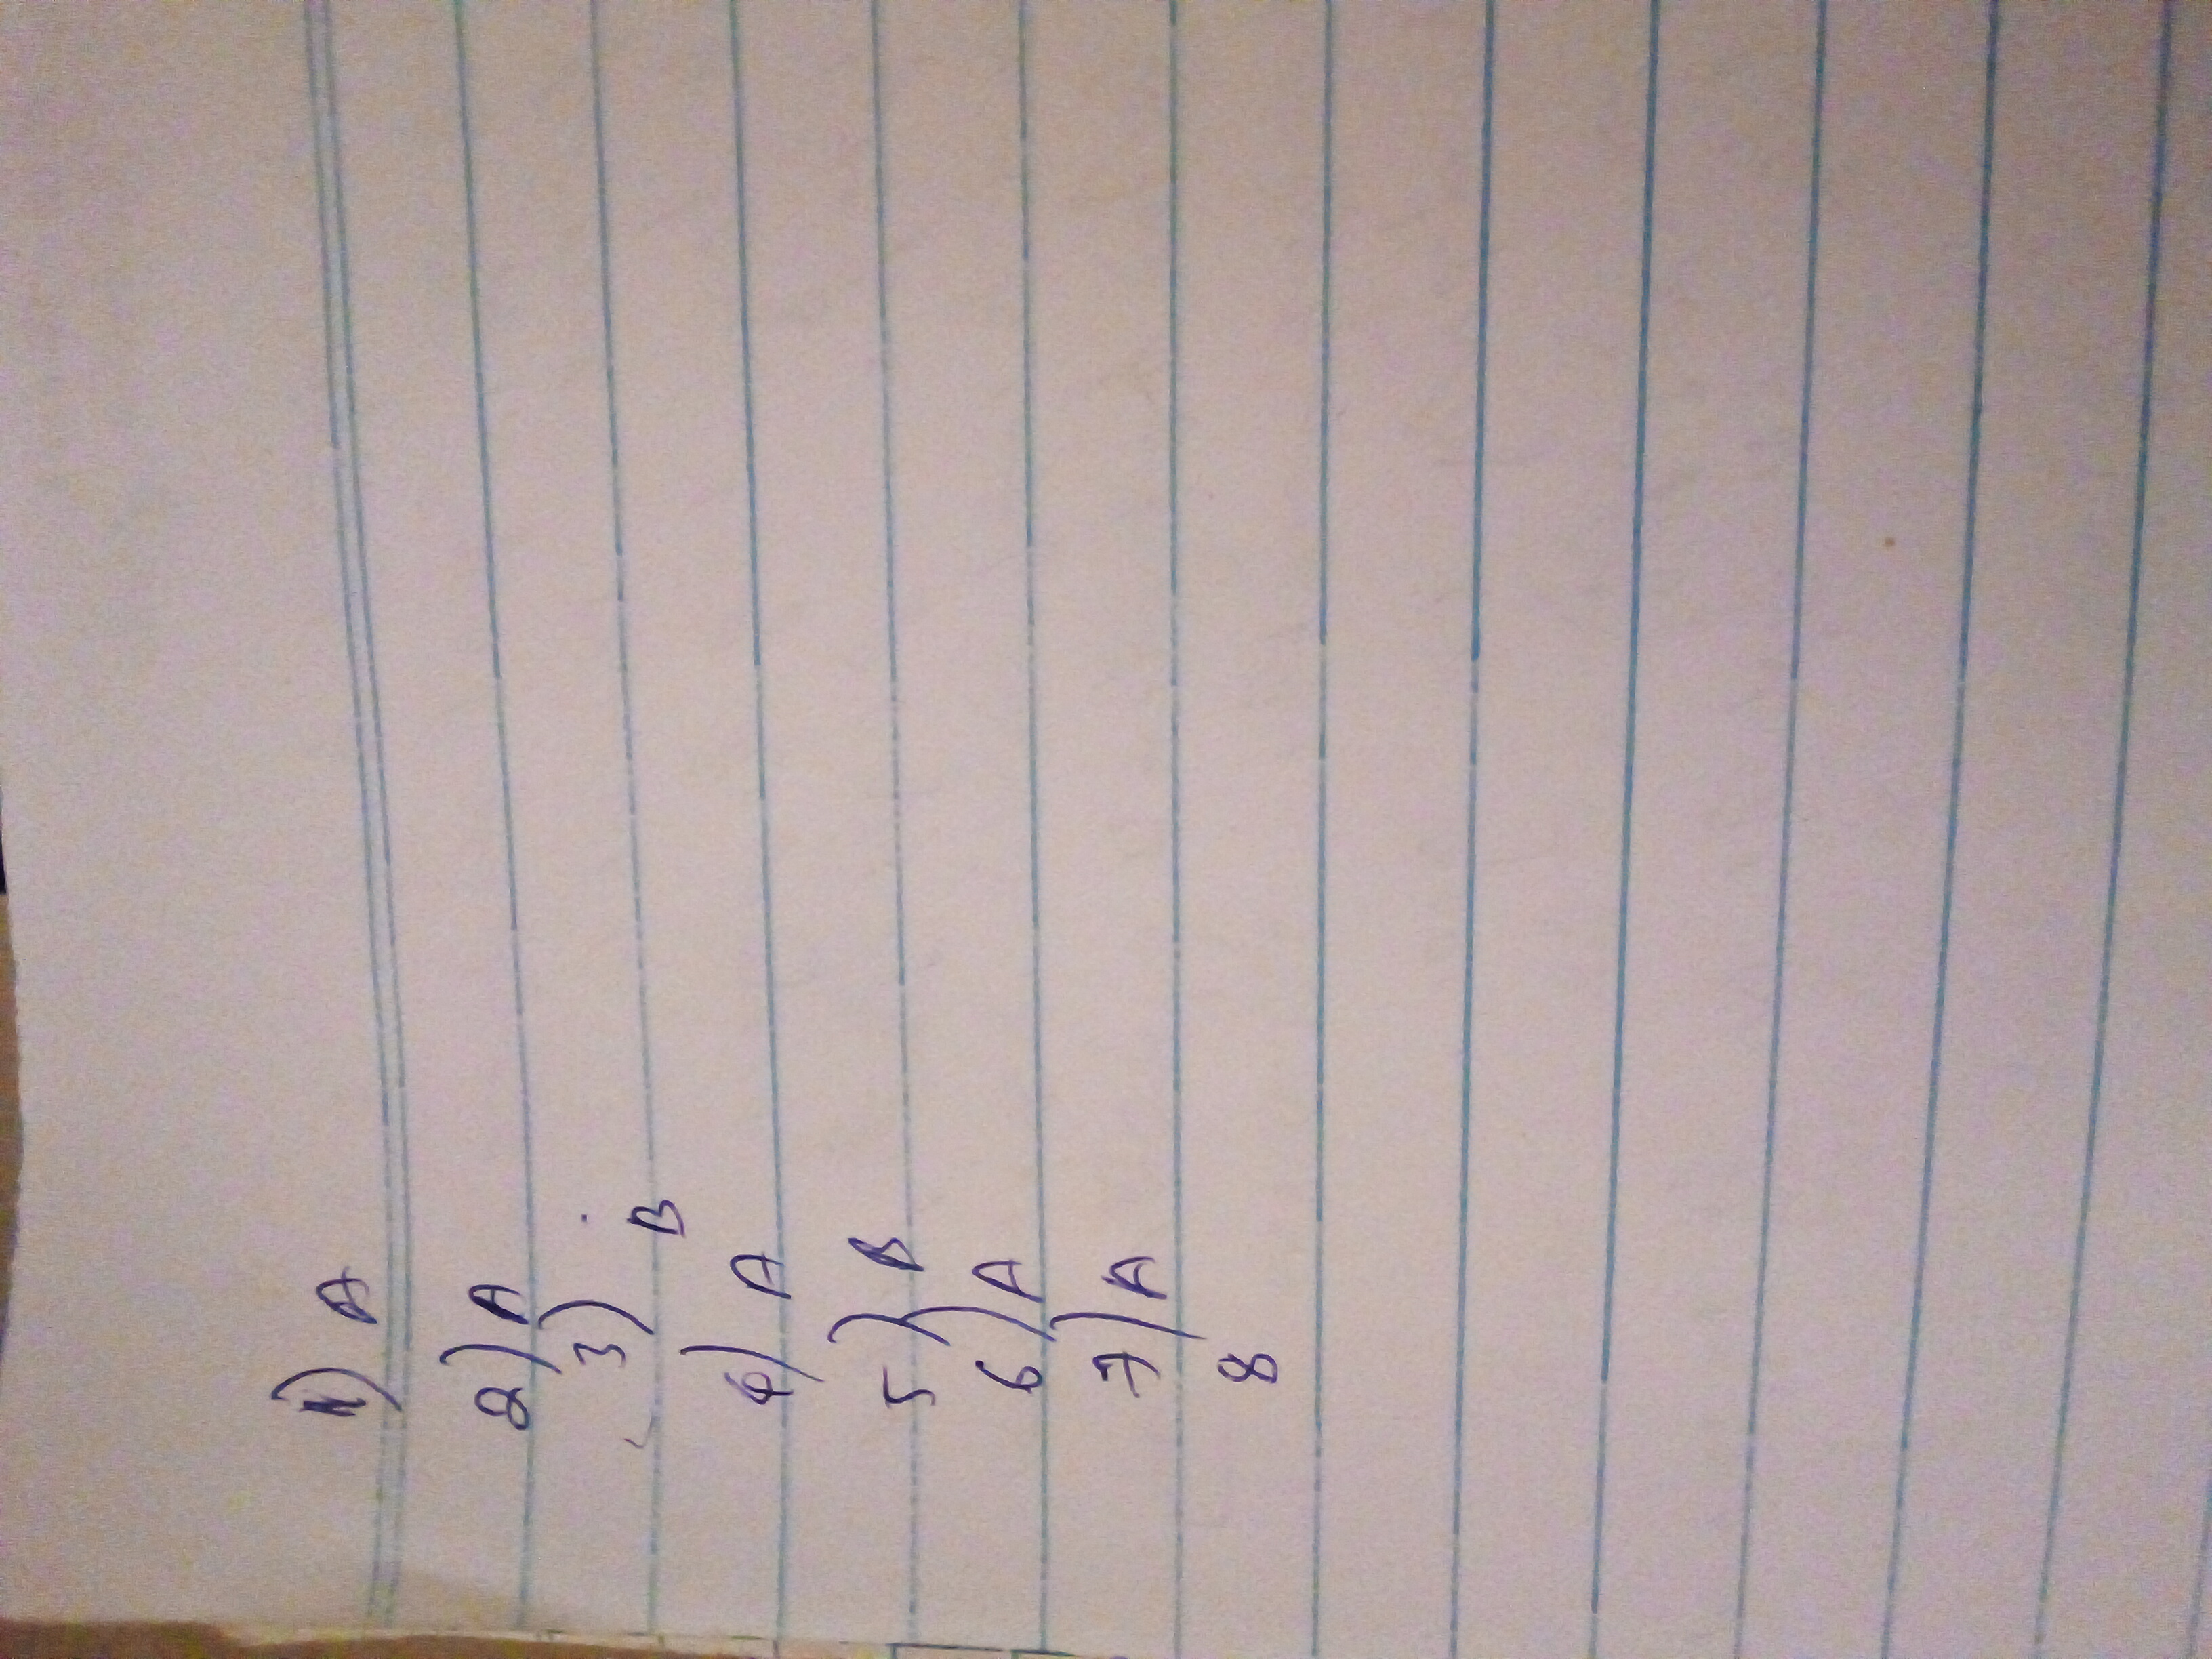 1) A
2) A
3) B
4) A
5) B
6) A
7) A
8